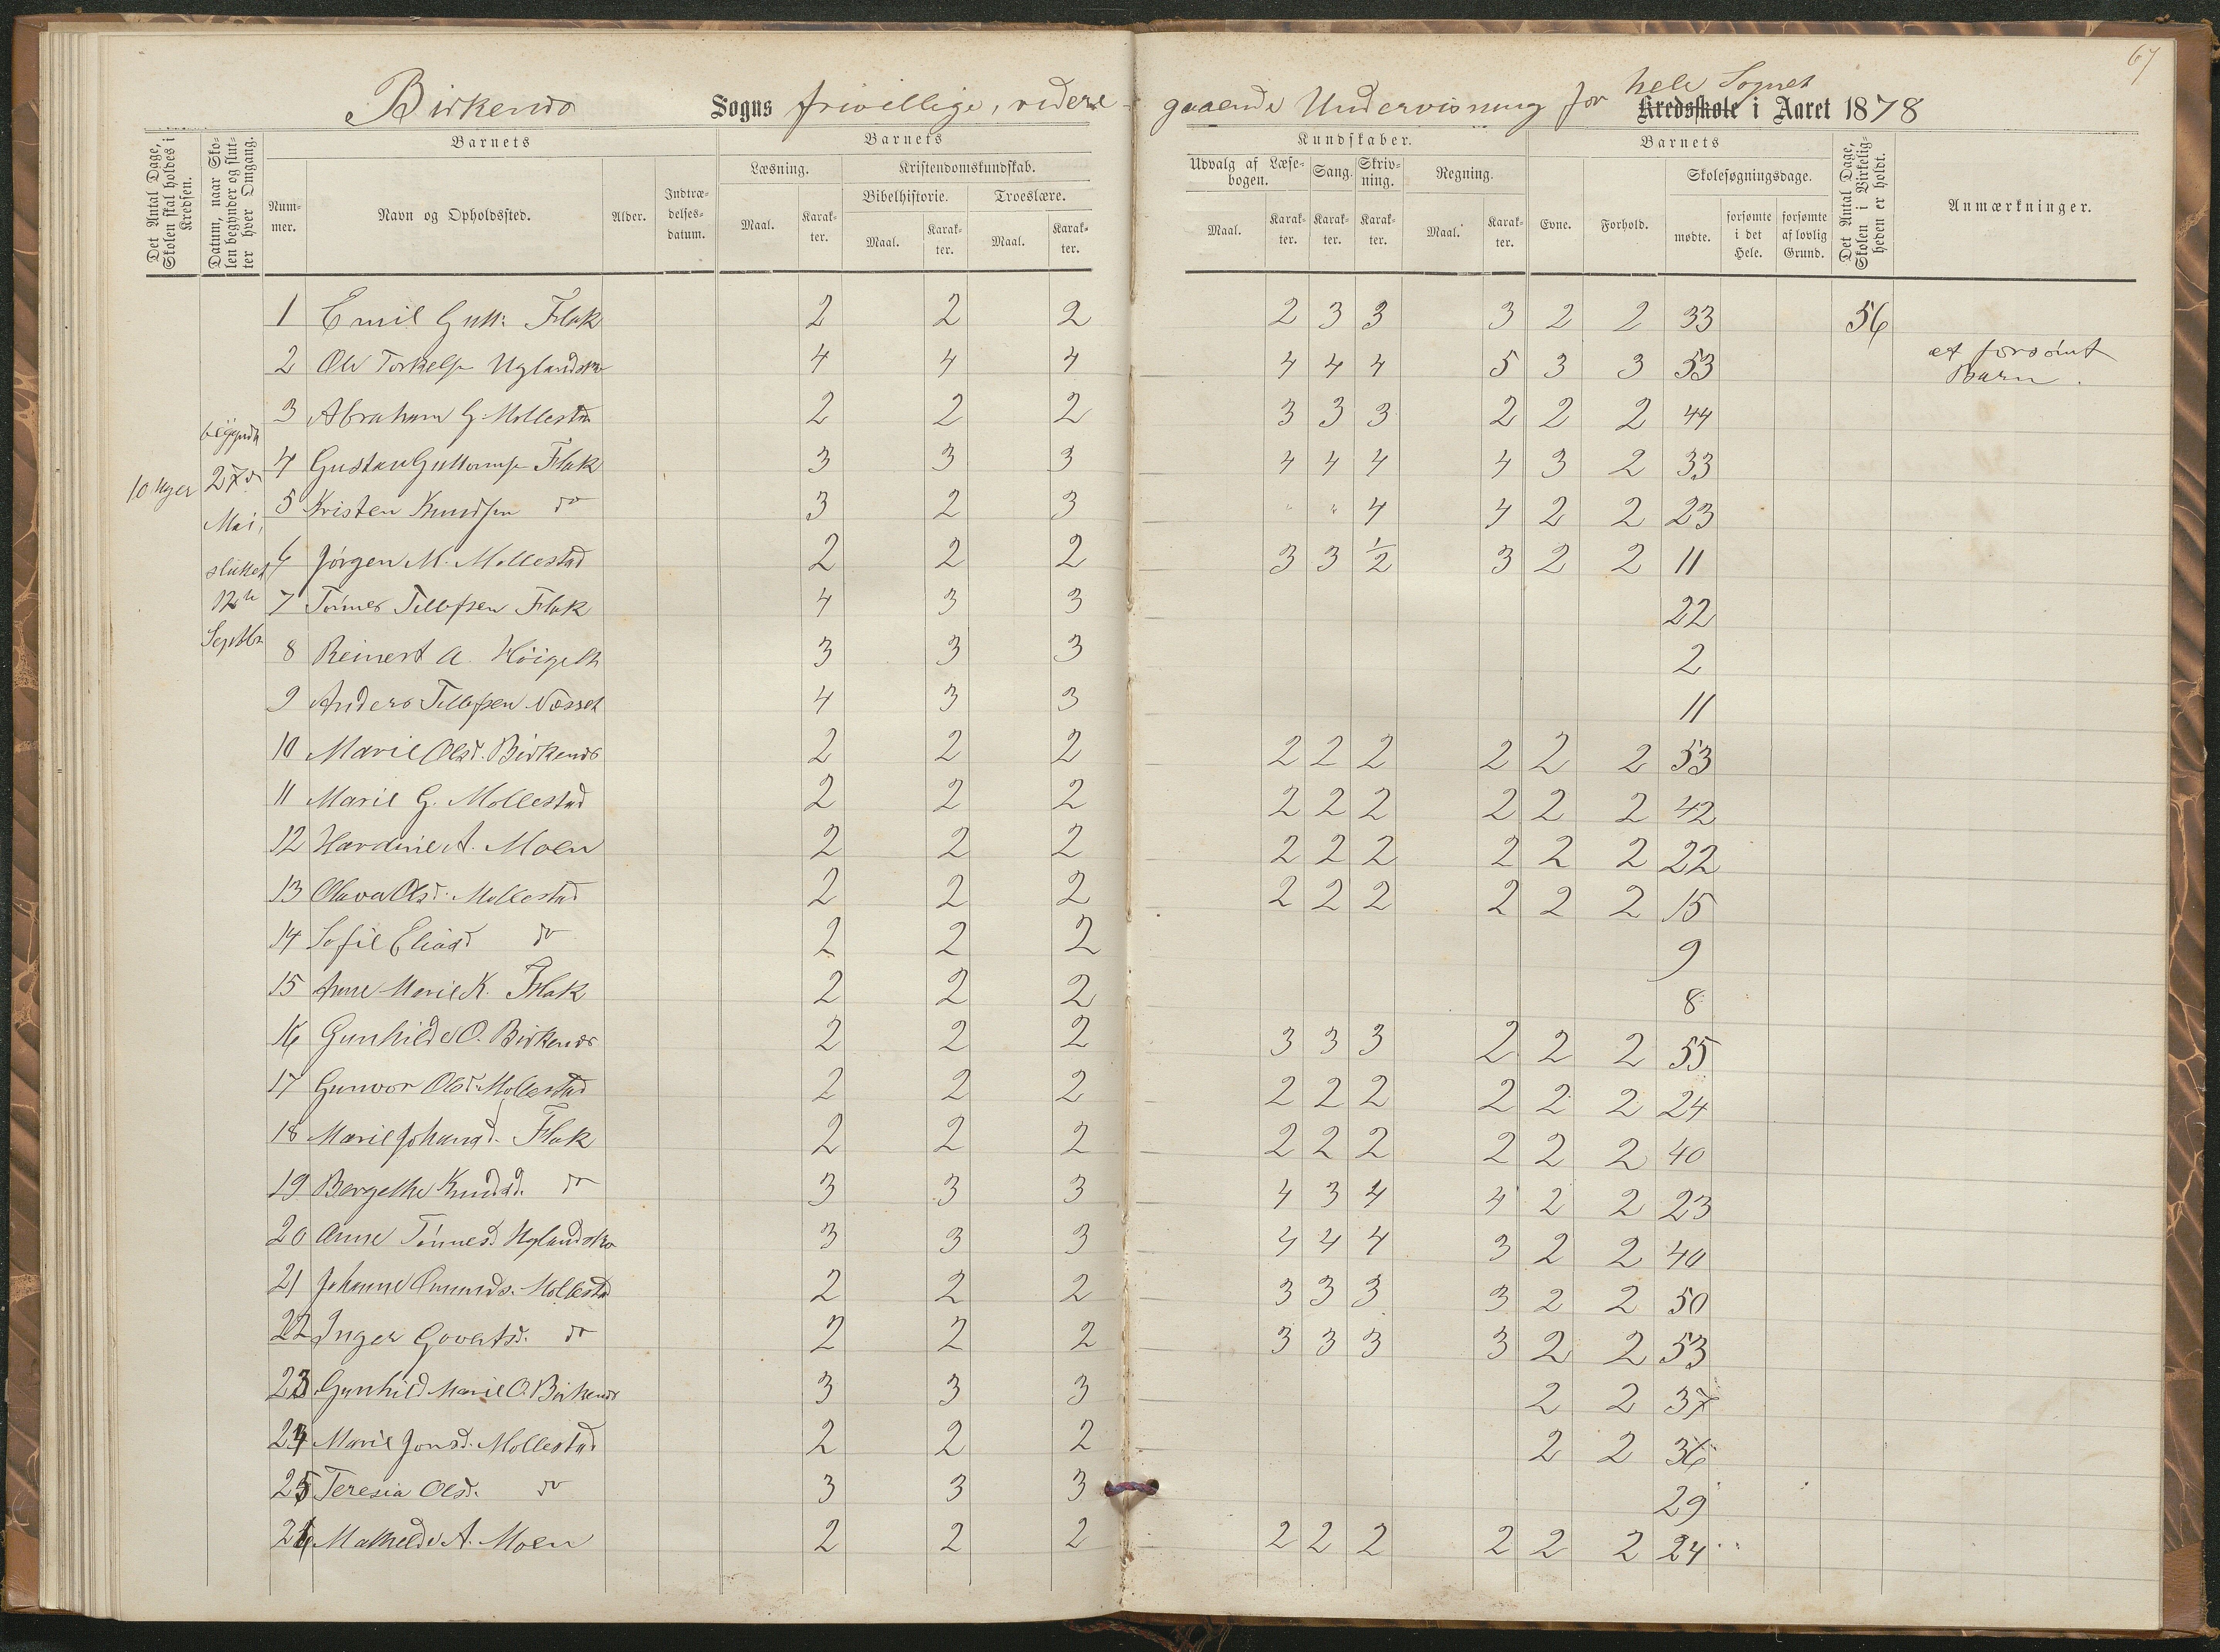 67
Birkenes Sogns frivillige, videregaaende Undervisning for hele Sognet Kredsskole i Aaret 1878
Det Antal Dage, Skolen skal holdes i Kredsen.
Datum, naar Skolen begynder og slutter hver Omgang.
Barnets
Nummer.
Navn og Opholdssted.
Alder.
Indtrædelsesdatum.
Barnets
Læsning.
Maal.
Karakter.
Kristendomskundskab.
Bibelhistorie.
Maal.
Karakter.
Troeslære.
Maal.
Karakter.
Kundskaber.
Udvalg af Læsebogen.
Maal.
Karakter.
Sang.
Karakter.
Skrivning.
Karakter.
Regning.
Maal.
Karakter.
Barnets
Evne.
Forhold.
Skolesøgningsdage.
mødte.
forsømte i det Hele.
forsømte af lovlig Grund.
Det Antal Dage, Skolen i Virkeligheden er holdt.
Anmærkninger.
10 Uger
begyndt
27de
Mai,
sluttet
12te
Septbr
1 Emil Gutt: Flak 2 2 2 2 3 3 3 2 2 33 56
2 Ole Torkelsn Uglandskr 4 4 4 4 4 4 5 3 3 53 et forsömt Barn.
3 Abraham G. Mollestad 2 2 2 3 3 3 2 2 2 44
4 Gustav Guttormsn Flak 3 3 3 4 4 4 4 3 2 33
5 Kristen Knudsen do 3 2 3 " " 4 4 2 2 23
6 Jörgen M. Mollestad 2 2 2 3 3 1/2 3 2 2 11
7 Tönnes Tellefsen Flak 4 3 3 22
8 Reinert A. 3 3 3 2
9 Anders Tellefsen Næsset 4 3 3 11
10 Marie Olsd. Birkenes 2 2 2 2 2 2 2 2 2 53
11 Marie G. Mollestad 2 2 2 2 2 2 2 2 2 42
12 Hardine A. Moen 2 2 2 2 2 2 2 2 2 22
13 Olava Olsd. Mollestad 2 2 2 2 2 2 2 2 2 15
14 Sofie Eliasd do 2 2 2 9
15 Anne Marie K. Flak 2 2 2 8
16 Gunhilde O. Birkenes 2 2 2 3 3 3 2 2 2 55
17 Gunvor Olsd. Mollestad 2 2 2 2 2 2 2 2 2 24
18 Marie Johansd. Flak 2 2 2 2 2 2 2 2 2 40
19 Bergethe Knudsd. do 3 3 3 4 3 4 4 2 2 23
20 Anne Tönnesd. Uglandskr 3 3 3 4 4 4 3 2 2 40
21 Johanne Omunds. Mollestad 2 2 2 3 3 3 3 2 2 50
22 Inger Govertsd. do 2 2 2 3 3 3 3 2 2 53
23 Gunhild Marie O. Birkenes 3 3 3 2 2 37
24 Marie Jonsd. Mollestad 2 2 2 2 2 36
25 Teresia Olsd. do 3 3 3 29
26 Mathilde A. Moen 2 2 2 2 2 2 2 2 2 24